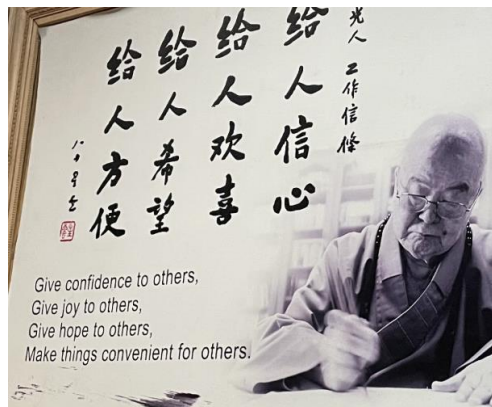 光人 工作信條
给人信心
给人欢喜
给人希望
给人方便
Give confidence to others,
Give joy to others,
Give hope to others,
Make things convenient for others.